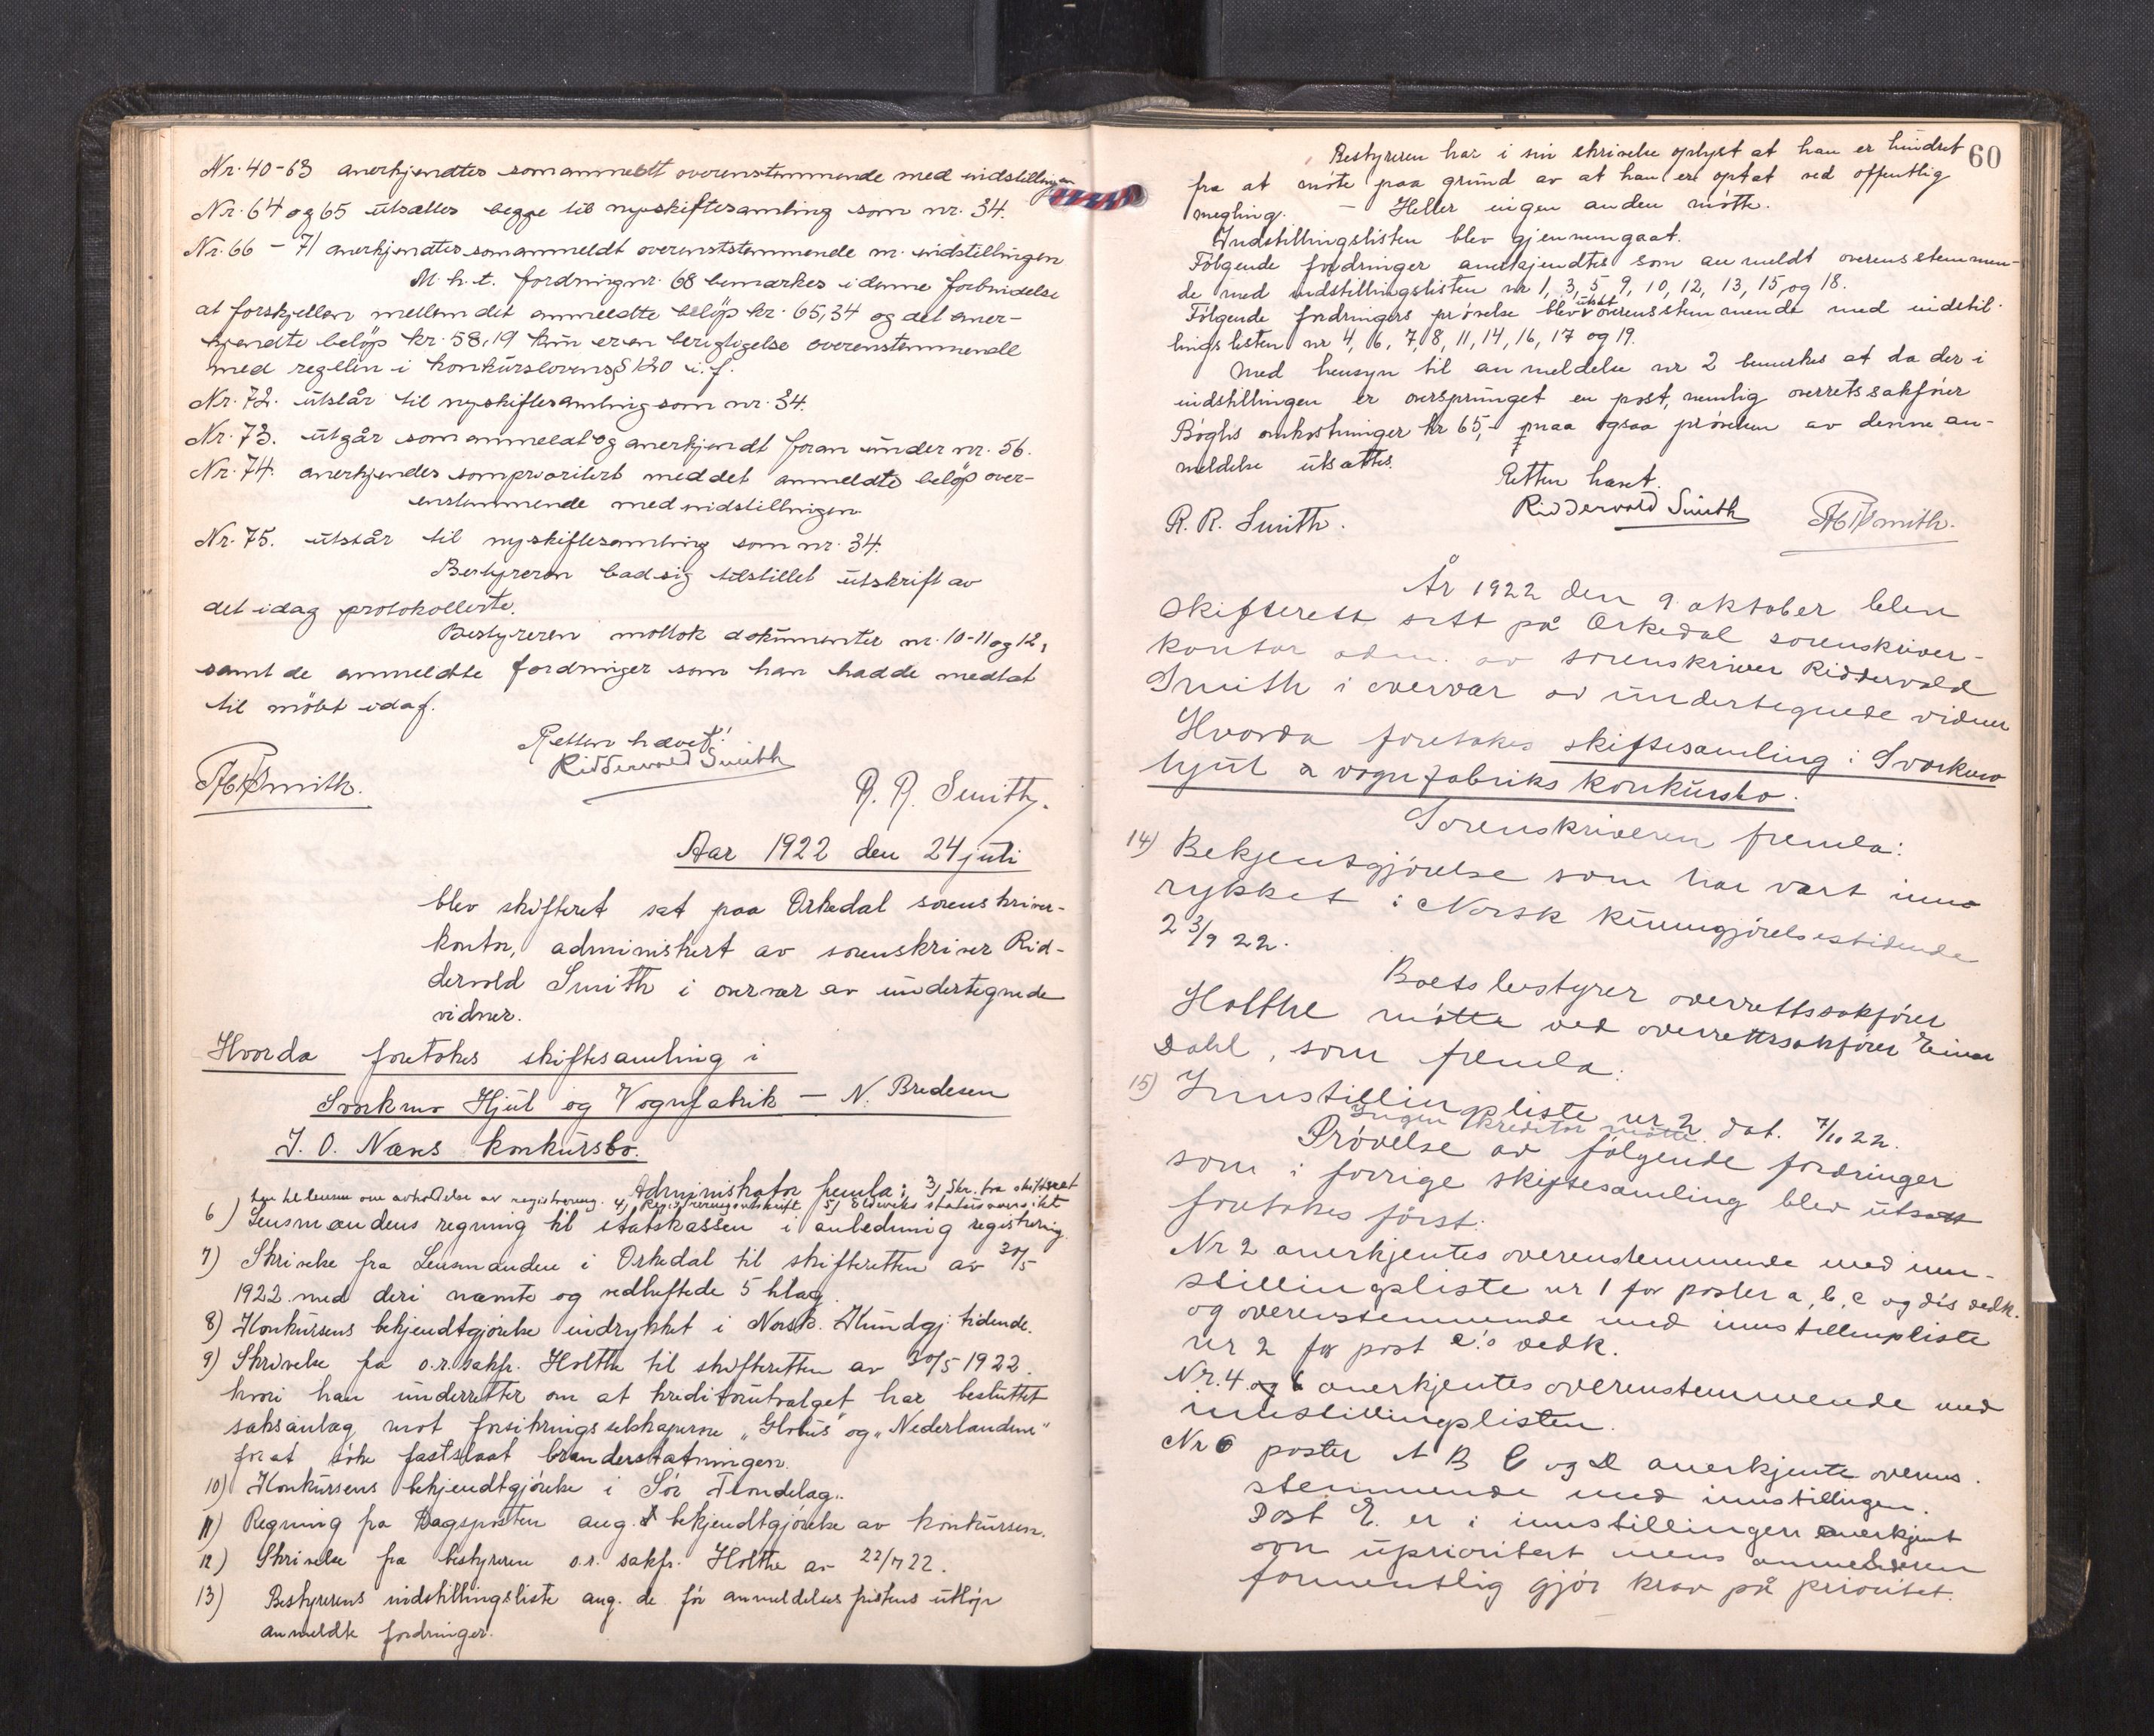 Nr. 40-63 anerkjendtes som anmeldt overenstemmende med indstillingen
Nr. 64 og 65 utsættes begge til ny skiftesamling som nr. 34.
Nr. 66 - 71 anerkjendtes som anmeldt overenststemmende m. indstillingen
M. h. t. fordring nr. 68 bemærkes i denne forbindelse
at forskjellen mellem det anmeldte beløp kr. 65,34 og det aner-
kjendte beløp kr. 58,19 kun er en berigtigelse overenstemmende
med regelen i konkurslovens § 120 i. f.
Nr. 72. utstår til ny skiftesamling som nr. 34.
Nr. 73. utgår som anmeldt og anerkjendt foran under nr. 56.
Nr. 74. anerkjendes som prioritert med det anmeldte beløp over-
enstemmende med indstillingen.
Nr. 75. utstår til ny skiftesamling som nr. 34.
Bestyreren bad sig tilstillet utskrift av
det idag protokollerte.
Bestyreren mottok dokumenter nr. 10-11 og 12,
samt de anmeldte fordringer som han hadde medtat
til møtet idag.
Retten hævet!
Riddervold Smith
R. R. Smith.
Aar 1922 den 24 juli
blev skifteret sat paa Orkedal sorenskriver-
kontor, administrert av sorenskriver Rid-
dervold Smith i overvær av undertegnede
vidner.
Hvorda foretokes skiftesamling i
Svorkmo Hjul og Vognfabrik — N. Bredesen
J. O. Næss konkursbo.
Administrator fremla: 3) Skr. fra skifteret
ten til lensm om avholdelse av registrering. 4) Registreringsutskrift 5)
6) Lensmandens regning til statskassen i anledning registrering
7) Skrivelse fra Lensmanden i Orkedal til skifteretten av 30/5
1922 med deri nævnte og vedheftede 5 bilag.
8) Konkursens bekjendtgjørelse indrykket i Norsk. Kundgj. tidende.
9) Skrivelse fra o.r.sakf. Holthe til skifteretten av 30/5 1922
hvori han underretter om at kreditorutvalget har besluttet
saksanlæg mot forsikringsselskaperne "Globus" og "Nederlandene"
for at søke fastslaat branderstatningen.
10) Konkursens bekjendtgjørelse i Sør Trondelag.
11) Regning fra Dagsposten ang. bekjendtgjørelse av konkursen.
12) Skrivelse fra bestyreren o.r. sakf. Holthe av 22/7 22.
13) Bestyrerens indstillingsliste ang. de før anmeldelsesfristens utløp
anmeldte fordringer.
60
Bestyreren har i sin skrivelse oplyst at han er hindret
fra at møte paa grund av at han er optat ved offentlig
megling. — Heller ingen anden møtte.
Indstillingslisten blev gjennemgaat.
Følgende fordringer anerkjendtes som anmeldt overensstemmen-
de med indstillingslisten nr 1, 3, 5, 9, 10, 12, 13, 15, og 18.
Følgende fordringers prøvelse blev utsat overensstemmende med indstil-
lingslisten nr 4, 6, 7, 8, 11, 14, 16, 17 og 19.
Med hensyn til anmeldelse nr 2 bemerkes at da der i
indstillingen er oversprunget en post, nemlig overretssakfører
Bøghs omkostninger kr 65,- maa ogsaa prøvelsen av denne an-
meldelse utsættes.
Retten hævet.
Riddervold Smith
R. R. Smith.
År 1922 den 9. oktober blev
skifterett sett på Orkedal sorenskriver-
kontor adm. av sorenskriver Riddervold
Smith i overvær av undertegnede vidner
Hvorda foretokes skiftesamling i Svorkmo
hjul & vognfabriks konkursbo.
Sorenskriveren fremla:
14) Bekjentgjørelse som har vært inn-
rykket i Norsk kunngjørelsestidende
23/9 22.
Boets bestyrer overrettssakfører
Holthe møtte ved overrettssakfører Einar
Dahl, som fremla:
15) Innstillingsliste nr 2 dat. 7/10 22.
Ingen kreditor møtte.
Prøvelse av følgende fordringer
som i forrige skiftesamling blev utsatt
foretokes først:
Nr 2 anerkjentes overenstemmende med inn-
stillingsliste nr 1 for poster a, b, c og d's vedk.
og overenstemmende med innstillingsliste
nr 2 for post e's vedk.
Nr. 4 anerkjentes overenstemmende med
innstillingslisten.
Nr 6 poster A B C og D anerkjente overens-
stemmende med innstillingen.
Post E. er i innstillingen anerkjent
som uprioritert mens anmelderen
formentlig gjør krav på prioritet.